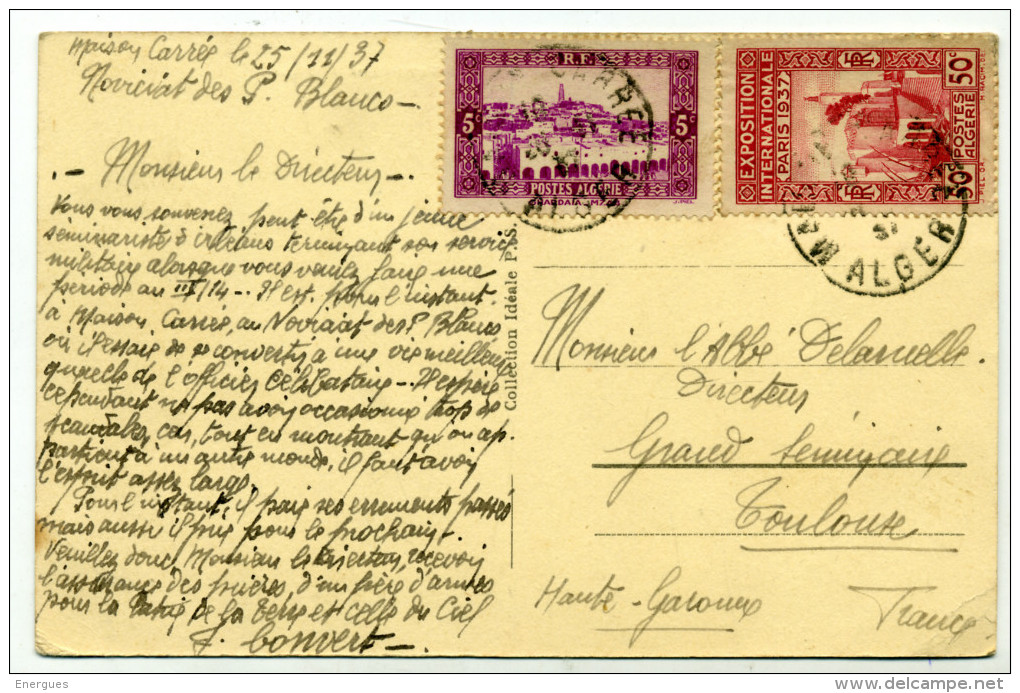 Maison Carrée le 25/11/37
Noviciat des P. Blancs -
. - Monsieur le Directeur -
Vous vous souvenez peut être d'un jeune
séminariste d'Orléans terminant son service
militaire alors que vous veniez faire une
période au III/14 -. Il est pour l'instant
à Maison Carrée, au Noviciat des P Blancs
où il essaie de se convertir à une vie meilleure
que celle de l'officier célibataire -. Il espère
cependant ne pas avoir occasionné trop de
scandales, car, tout en montrant qu'on ap.
partient à un autre monde, il faut avoir
l'esprit assez large.
Pour l'instant, il paie ses errements passés
mais aussi il prie pour le prochain -.
Veuillez donc, Monsieur le Directeur, recevoir
l'assurance des prières, d'un frère d'armes
pour la Patrie de la Terre et celle du Ciel
J. Convert -
Collection Idéale P.S.
R.F.
5c 5c
POSTES ALGÉRIE
GHARDAIA-MZAB
J.PIEL.
CARRÉE
ALGER
EXPOSITION
INTERNATIONALE
PARIS 1937
RF
RF
50c
POSTES
ALGÉRIE
50c
ALGER
Monsieur l'Abbé Delaruelle.
Directeur
Grand Séminaire
Toulouse
Haute-Garonne France
Energues
delcampe.net